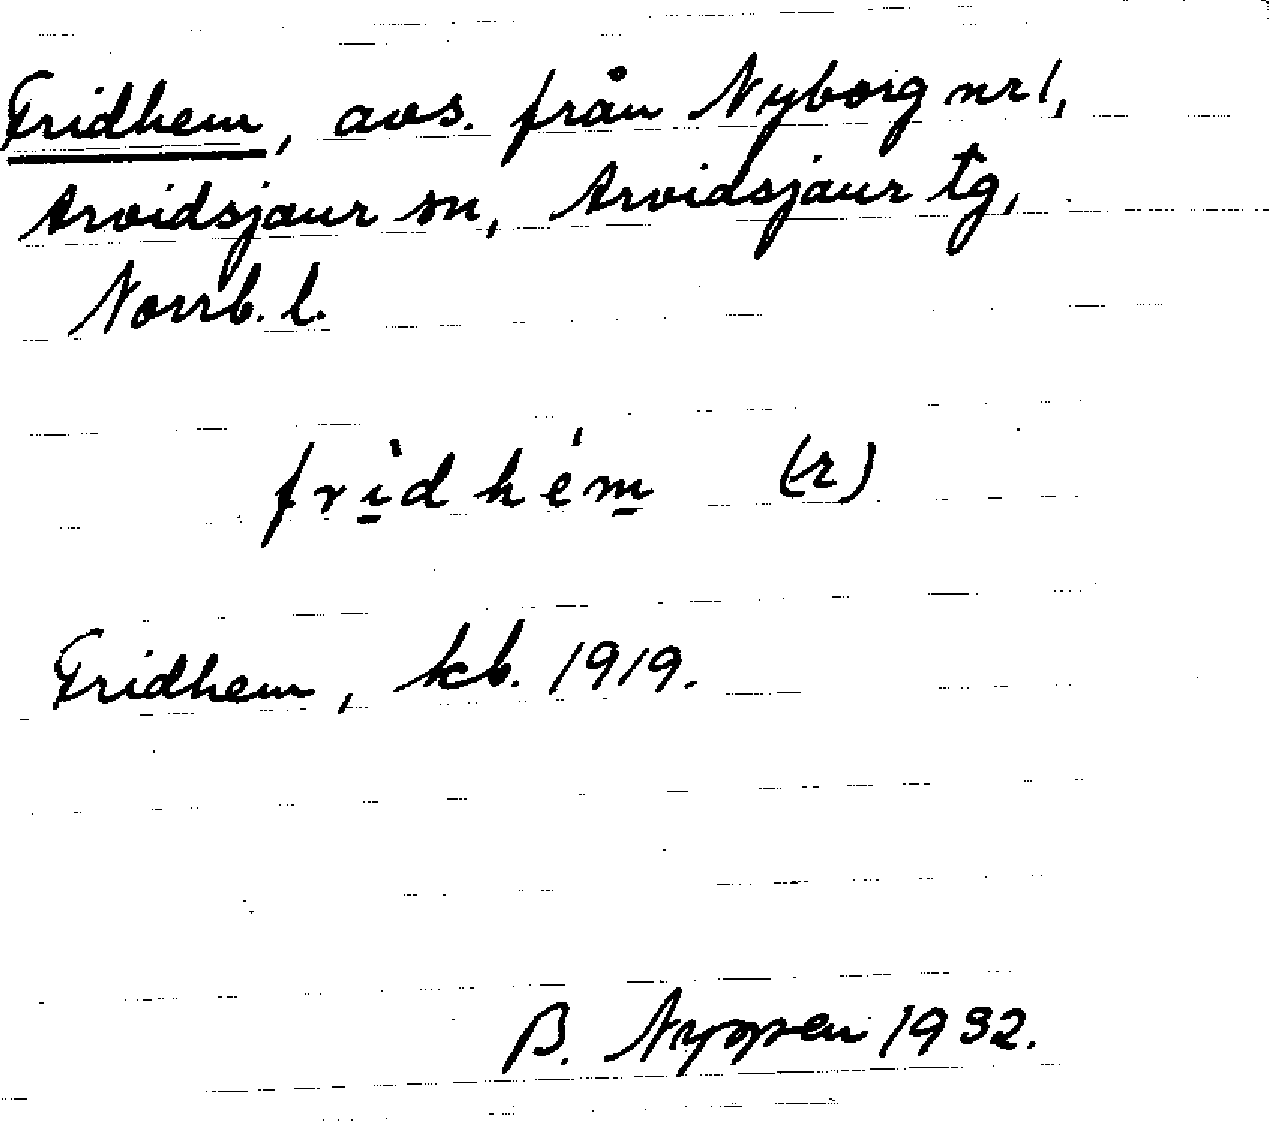 Fridhem, avs. från Nyborg nr 1,
Arvidsjaur sn, Arvidsjaur tg,
Norrb. l.
frì̱dhém̱ (r)
Fridhem, kb. 1919.
B. 1932.